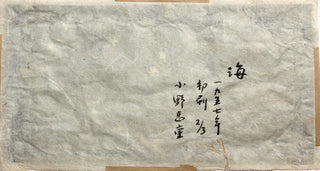 海
一九五七年
初刷 2/3
小野忠重